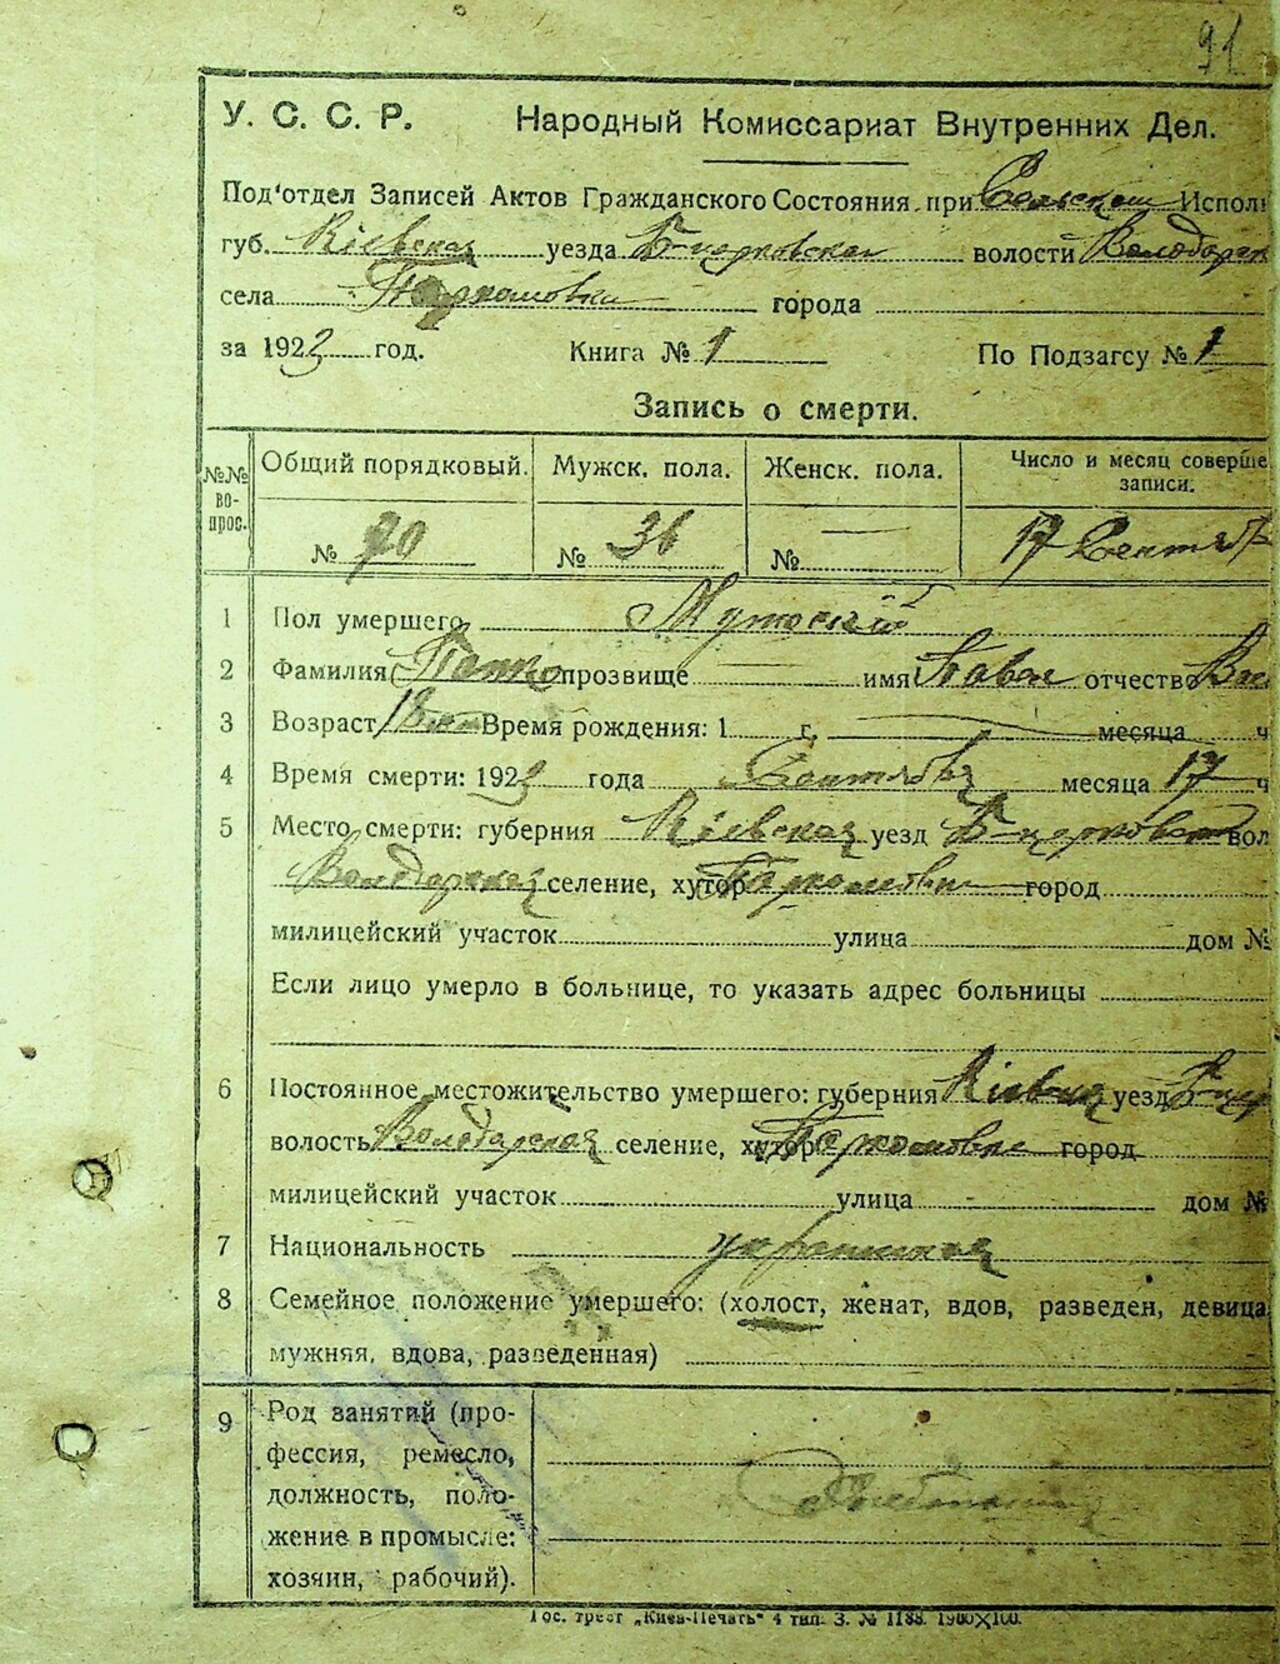 91
У. С. С. Р. Народный Комиссариат Внутренних Дел.
Под'отдел Записей Актов Гражданского Состояния при Сельском Испол
губ. Кіевская уезда Б-церковская волости Володарск
села Пархомовки города
за 1923 год. Книга № 1 По Подзагсу № 1
Запись о смерти.
№№ во-прос. Общий порядковый. Мужск. пола. Женск. пола. Число и месяц соверше записи.
№ 70 № 36 № — 17 Сентяб
1 Пол умершего Мужской
2 Фамилия прозвище — имя Павел отчество Вас
3 Возраст Время рождения: 1 г. месяца ч
4 Время смерти: 1923 года Сентября месяца 17 ч
5 Место смерти: губерния Кіевская уезд Б-церковск вол
Володарская селение, хутор Пархомовки город
милицейский участок улица дом №
Если лицо умерло в больнице, то указать адрес больницы
6 Постоянное местожительство умершего: губерния Кіевская уезд Б-цер
волость Володарская селение, хутор Пархомовка город
милицейский участок улица - дом №
7 Национальность украинская
8 Семейное положение умершего: (холост, женат, вдов, разведен, девица
мужняя, вдова, разведенная)
9 Род занятий (про-
фессия, ремесло,
должность, поло-
жение в промысле:
хозяин, рабочий).
Гос. трест „Киев-Печать" 4 тип. З. № 1188. 1900X100.